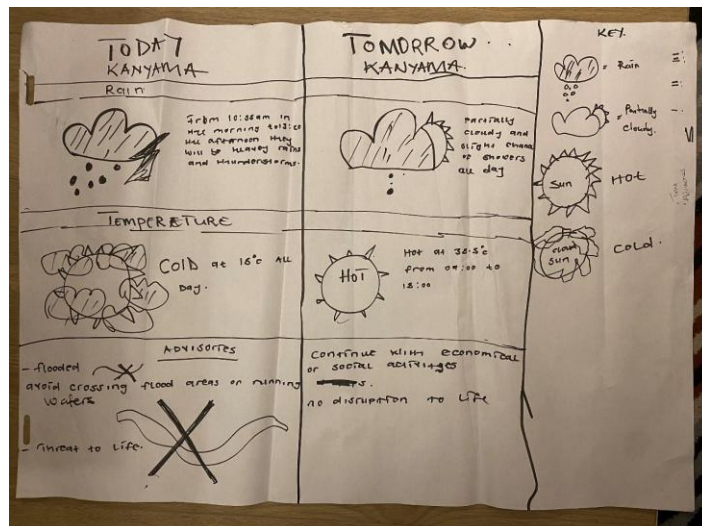 TODAY
KANYAMA
Rain
From 10:35am in
the morning to 13:00
the afternoon they
will be heavy rains
and thunderstorms.
TEMPERETURE
COLD at 16°c ALL
Day.
ADVISORIES
- flooded
avoid crossing flood areas or running
waters
- threat to Life.
TOMORROW..
KANYAMA.
Partially
cloudy and
slight chance
of showers
all day
HOT
Hot at
from 09:00 to
18:00
Continue with economical
or social activities
no disruption to Life
KEY.
= Rain
= Partially
cloudy.
sun
HOT
cloud
sun
COLD.